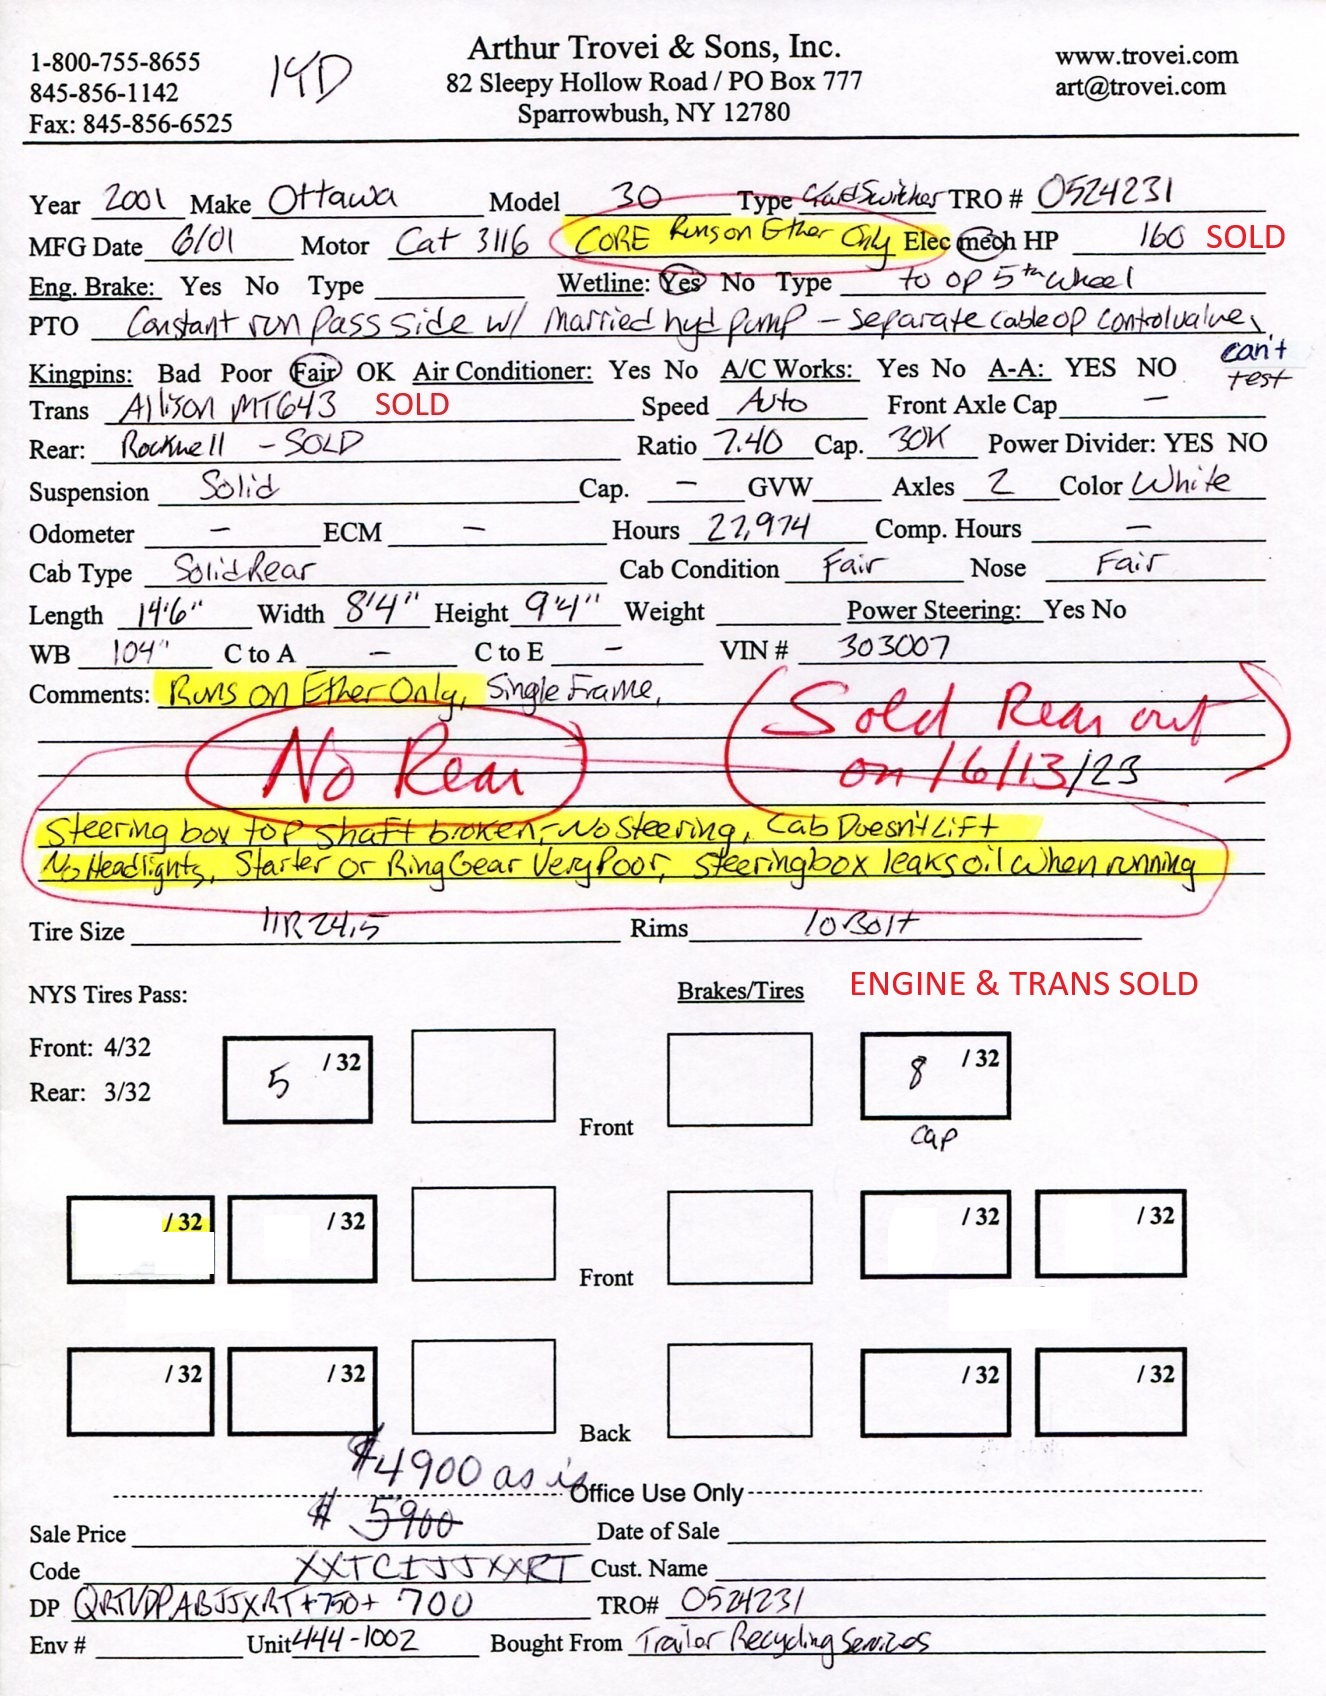 1-800-755-8655
845-856-1142
Fax: 845-856-6525
Arthur Trovei & Sons, Inc.
82 Sleepy Hollow Road / PO Box 777
Sparrowbush, NY 12780
www.trovei.com
art@trovei.com
Year 2001 Make Ottawa Model 30 Type YardSwitcher TRO # 0524231
MFG Date 6/01 Motor Cat 3116 CORE Runs on Ether Only Elec mech HP 160 SOLD
Eng. Brake: Yes No Type Wetline: Yes No Type to op 5th wheel
PTO Constant run pass side w/ Married hyd pump - separate cable op control valve,
can't test
Kingpins: Bad Poor Fair OK Air Conditioner: Yes No A/C Works: Yes No A-A: YES NO
Trans Allison MT643 SOLD Speed Auto Front Axle Cap -
Rear: Rockwell - SOLD Ratio 7.40 Cap. 30K Power Divider: YES NO
Suspension Solid Cap. - GVW Axles 2 Color White
Odometer - ECM - Hours 27,974 Comp. Hours -
Cab Type Solid Rear Cab Condition Fair Nose Fair
Length 14'6" Width 8'4" Height 9'4" Weight Power Steering: Yes No
WB 104" C to A - C to E - VIN # 303007
Comments: Runs on Ether Only, Single Frame,
No Rear
Sold Rear out
on 6/13/23
Steering box top shaft broken,-No Steering, Cab Doesn't Lift
No Headlights, Starter or Ring Gear Very Poor, steering box leaks oil when running
Tire Size 11R24.5 Rims 10 Bolt
NYS Tires Pass: Brakes/Tires ENGINE & TRANS SOLD
Front: 4/32
Rear: 3/32
5 /32 Front 8 /32
cap
/32 /32 Front /32 /32
/32 /32 Back /32 /32
$4900 as is
Office Use Only
Sale Price $ 5900 Date of Sale
Code XXTCIJJXXRT Cust. Name
DP QRTVDPABJJXRT +750+ 700 TRO# 0524231
Env # Unit 444-1002 Bought From Trailor Recycling Services